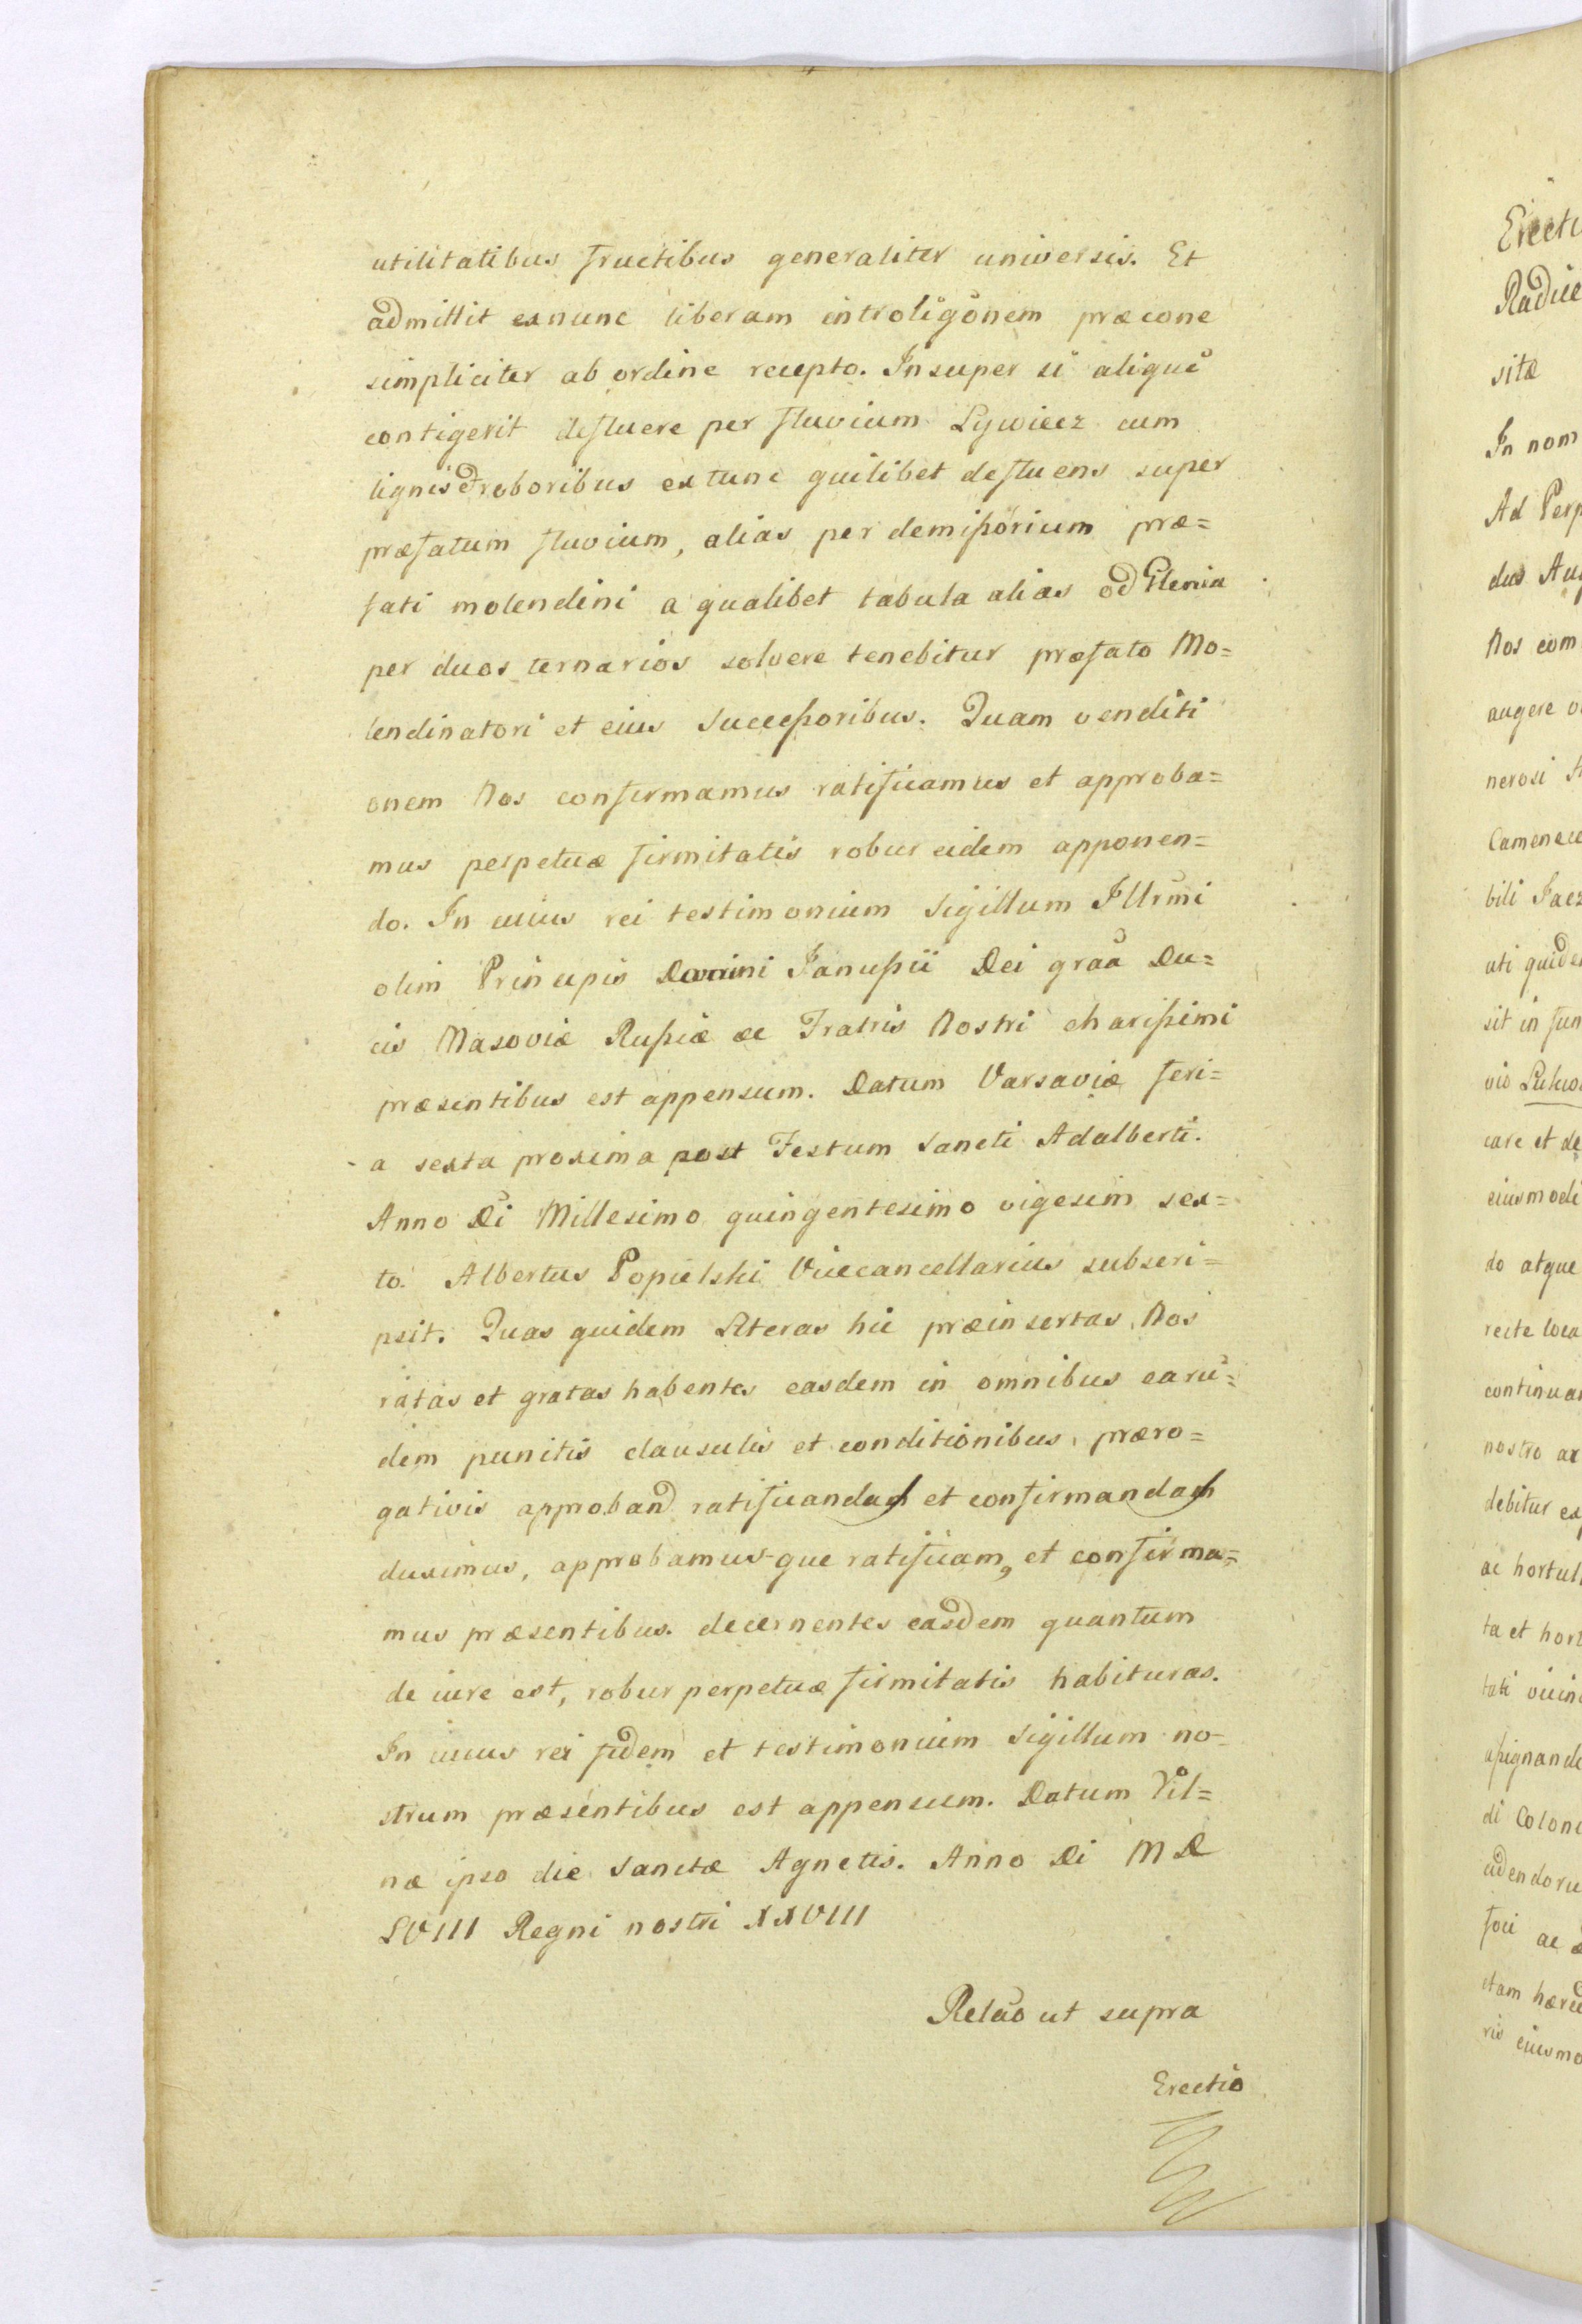 utilitatibus fructibus generaliter universis. Et
admittit exnunc liberam introligõnem præcone
simpliciter ab ordine recepto. Insuper si aliquẽ
contigerit defluere per fluvium Lywiecz cum
lignis et roboribus extunc quilibet defluens super
præfatum fluvium, alias per demißorium præ=
fati molendini a qualibet tabula alias od
per duos ternarios solvere tenebitur præfato Mo=
lendinatori et eius Succeßoribus. Quam venditi
onem Nos confirmamus ratificamus et approba=
mus perpetuæ firmitatis robur eidem apponen=
do. In cuius rei testimonium Sigillum Illrmi
olim Principis Domini Janußii Dei graã Du=
cis Masoviæ Rußiæ ac Fratris Nostri charißimi
præsentibus est appensum. Datum Varsaviæ feri=
a sexta proxima post Festum Sancti Adalberti.
Anno Di Millesimo quingentesimo vigesim sex=
to. Albertus Popielski Vicecancellarius subscri=
psit. Quas quidem Literas hic præinsertas, Nos
ratas et gratas habentes easdem in omnibus earũ=
dem punctis clausulis et conditionibus, præro=
gativis approband ratificandas et confirmandas
duximus, approbamus que ratificam, et confirma=
mus præsentibus. decernentes easdem quantum
de iure est, robur perpetuæ firmitatis habituras.
In cuius rei fidem et testimonium Sigillum no=
strum præsentibus est appensum. Datum Vil=
næ ipso die Sanctæ Agnetis. Anno Di MD
LVIII Regni nostri XXVIII
Relão ut supra
Erectio
Erecti
Radice
sitæ
In nom
Ad Perp
dus Aug
Nos com
augere
nerosi
Camenece
bili Jacz
uti quide
sit in fun
care et de
eiusmodi
do atque
recte loca
continua
nostro
debitur ex
ac hortul
ta et hort
tati vicin
aßignande
di Coloni
foci ac